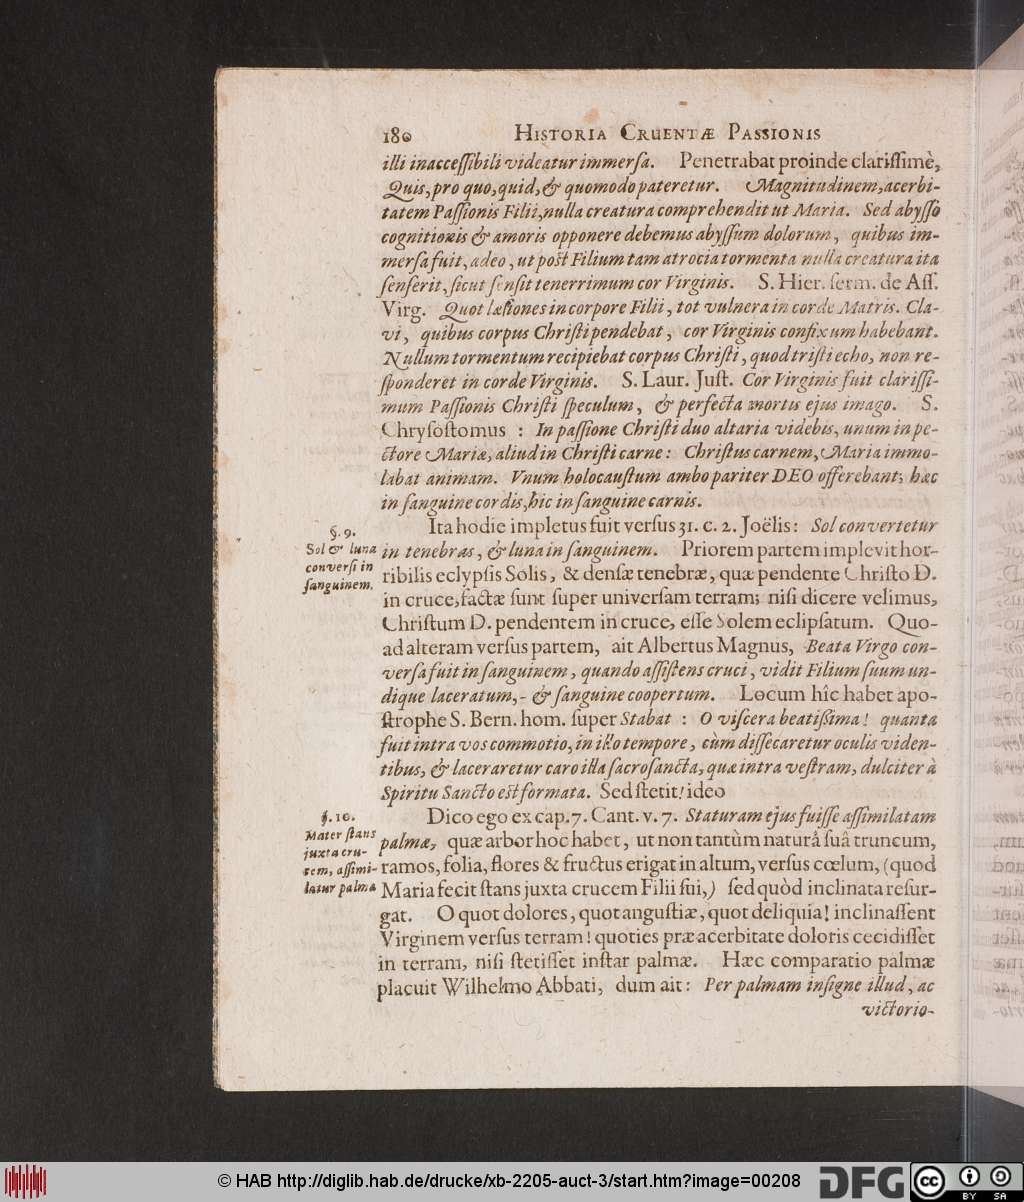 180 HISTORIA CRUENTÆ PASSIONIS
illi inaccessibili videatur immersa. Penetrabat proinde clarissimè,
Quis, pro quo, quid, & quomodo pateretur. Magnitudinem, acerbi-
tatem Passionis Filii, nulla creatura comprehendit ut Maria. Sed abysso
cognitionis & amoris opponere debemus abyssum dolorum, quibus im-
mersa fuit, adeo, ut post Filium tam atrocia tormenta nulla creatura ita
senserit, sicut sensit tenerrimum cor Virginis. S. Hier. serm. de Ass.
Virg. Quot læsiones in corpore Filii, tot vulnera in corde Matris. Cla-
vi, quibus corpus Christi pendebat, cor Virginis confixum habebant.
Nullum tormentum recipiebat corpus Christi, quod tristi echo, non re-
sponderet in corde Virginis. S. Laur. Just. Cor Virginis fuit clarissi-
mum Passionis Christi speculum, & perfecta mortis ejus imago. S.
Chrysostomus : In passione Christi duo altaria videbis, unum in pe-
ctore Mariæ, aliud in Christi carne: Christus carnem, Maria immo-
labat animam. Vnum holocaustum ambo pariter DEO offerebant; hæc
in sanguine cordis, hic in sanguine carnis.
§. 9.
Sol & luna
conversi in
sanguinem.
Ita hodie impletus fuit versus 31. c. 2. Joëlis: Sol convertetur
in tenebras, & luna in sanguinem. Priorem partem implevit hor-
ribilis eclypsis Solis, & densæ tenebræ, quæ pendente Christo D.
in cruce, factæ sunt super universam terram; nisi dicere velimus,
Christum D. pendentem in cruce, esse Solem eclipsatum. Quo-
ad alteram versus partem, ait Albertus Magnus, Beata Virgo con-
versa fuit in sanguinem, quando assistens cruci, vidit Filium suum un-
dique laceratum,- & sanguine coopertum. Locum hîc habet apo-
strophe S. Bern. hom. super Stabat : O viscera beatissima! quanta
fuit intra vos commotio, in illo tempore, cùm dissecaretur oculis viden-
tibus, & laceraretur caro illa sacrosancta, quæ intra vestram, dulciter à
Spiritu Sancto est formata. Sed stetit! ideo
§. 10.
Mater stans
juxta cru-
cem, assimi-
latur palmæ
Dico ego ex cap. 7. Cant. v. 7. Staturam ejus fuisse assimilatam
palmæ, quæ arbor hoc habet, ut non tantùm naturâ suâ truncum,
ramos, folia, flores & fructus erigat in altum, versus cœlum, (quod
Maria fecit stans juxta crucem Filii sui,) sed quòd inclinata resur-
gat. O quot dolores, quot angustiæ, quot deliquia! inclinassent
Virginem versus terram! quoties præ acerbitate doloris cecidisset
in terram, nisi stetisset instar palmæ. Hæc comparatio palmæ
placuit Wilhelmo Abbati, dum ait: Per palmam insigne illud, ac
victorio-
© HAB http://diglib.hab.de/drucke/xb-2205-auct-3/start.htm?image=00208
DFG
cc
BY SA